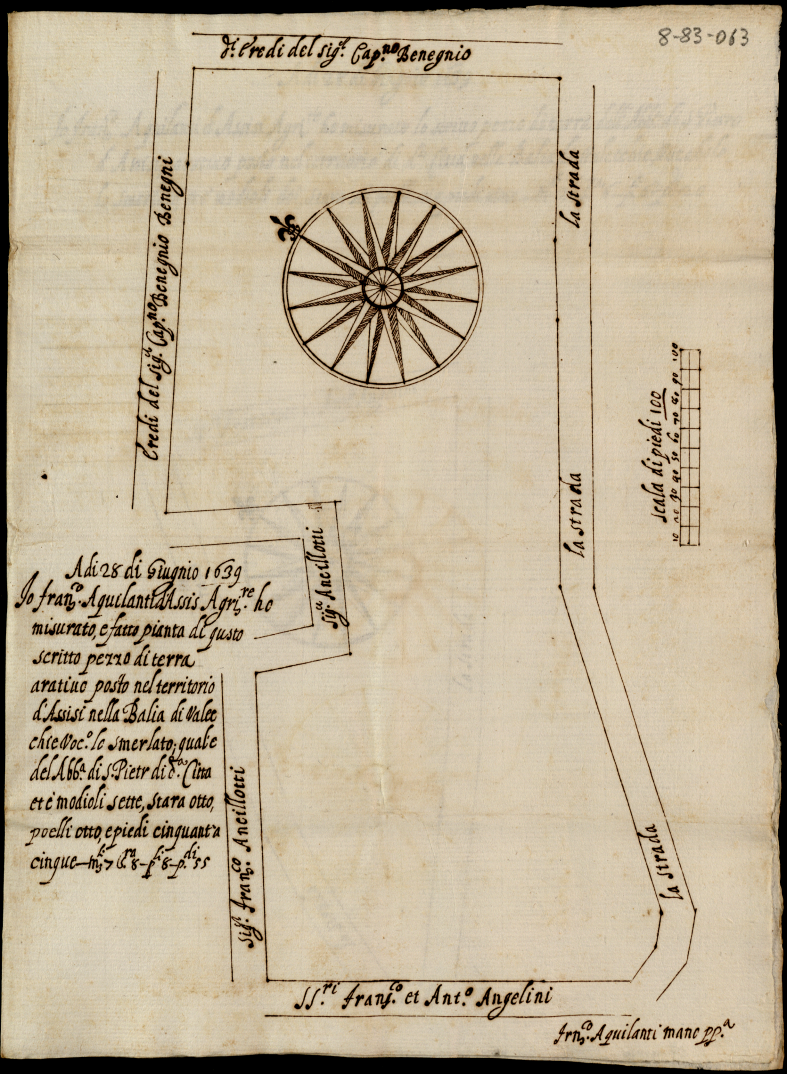 8-83-063
d.ti Eredi del sig.r Cap.no Benegnio
Eredi del sig.r Cap.no Benegnio Benegni
la strada
la strada
scala di piedi 100
10 20 30 40 50 60 70 80 90 100
sig.r Ancillotti
A di 28 di Giugnio 1639
Io fran.co Aquilanti d'Assis Agrim.re ho
misurato, e fatto pianta di questo
scritto pezzo di terra
arativo posto nel territorio
d'Assisi nella Balia di Valec
chie Voc.o lo smerlato, quale
del Abb.a di S. Pietr di d.a Citta
et è modioli sette, stara otto,
poelli otto, e piedi cinquanta
cinque — m.li 7 S.ra 8 — p.li 8 — p.di 55
sig.r fran.co Ancillotti
la strada
SS.ri fran.co et Ant.o Angelini
frn.co Aquilanti mano pp.a